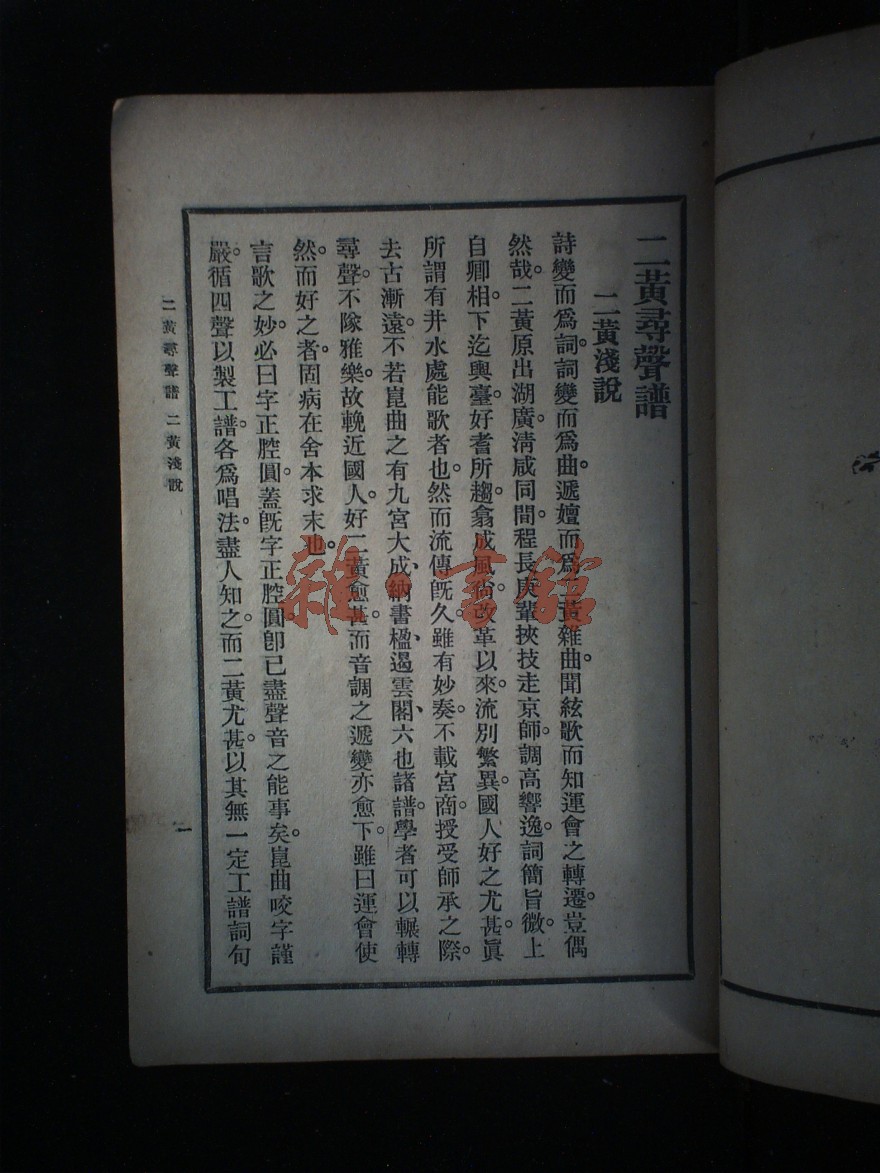 二黃尋聲譜
二黃淺說
詩變而爲詞。詞變而爲曲。遞嬗而爲二黃雜曲。聞絃歌而知運會之轉遷。豈偶
然哉。二黃原出湖廣。淸咸同間。程長庚輩挾技走京師。調高響逸。詞簡旨微。上
自卿相。下迄輿臺。好耆所趨。翕成風尙。改革以來。流別繁異。國人好之尤甚。眞
所謂有井水處能歌者也。然而流傳旣久。雖有妙奏。不載宮商。授受師承之際。
去古漸遠。不若崑曲之有九宮大成、納書楹、遏雲閣、六也諸譜。學者可以輾轉
尋聲。不隊雅樂。故輓近國人。好二黃愈甚。而音調之遞變亦愈下。雖曰運會使
然。而好之者。固病在舍本求末也。
言歌之妙。必曰字正腔圓。蓋旣字正腔圓。卽已盡聲音之能事矣。崑曲咬字謹
嚴。循四聲以製工譜。各爲唱法。盡人知之。而二黃尤甚。以其無一定工譜詞句
二黃尋聲譜 二黃淺說
一
雜·書館